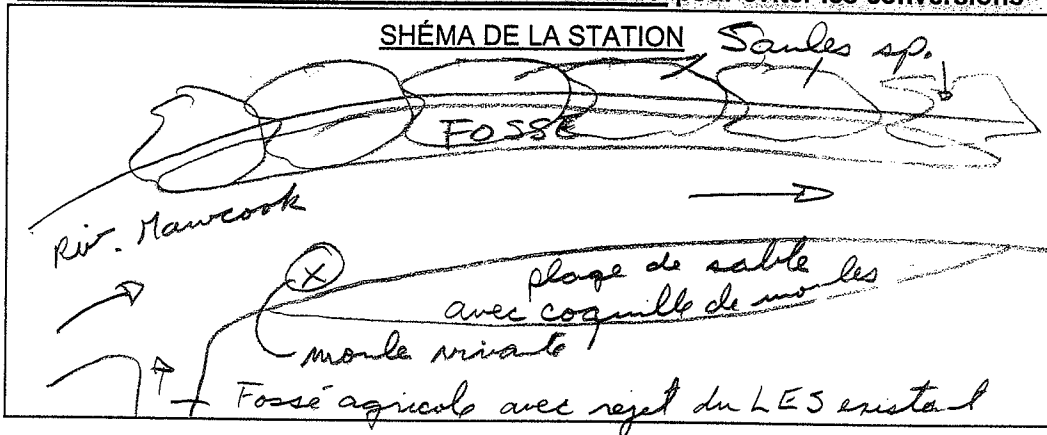 pour éviter les conversions
SHÉMA DE LA STATION
Saules sp.
FOSSE
Riv. Mawcook
plage de sable
avec coquille de moules
moule vivante
Fossé agricole avec rejet du LES existant